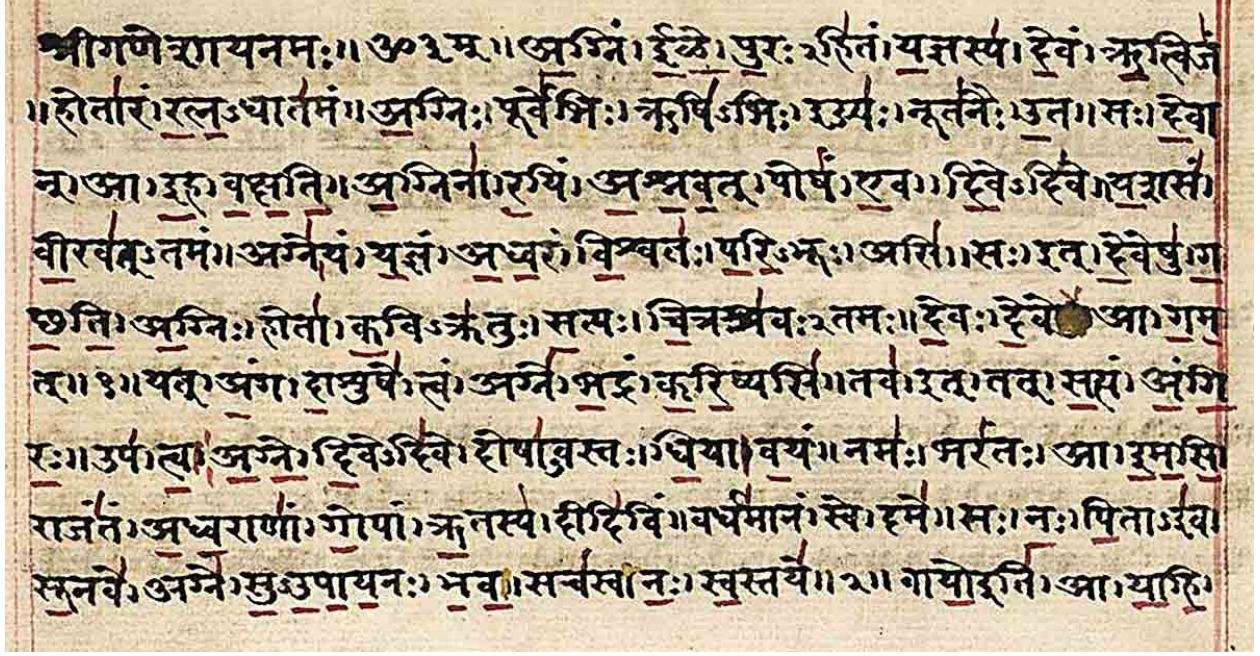 श्रीगणेशायनमः॥ ॐ३म्॥ अग्निं। ईळे। पुरःऽहितं। यज्ञस्य। देवं। ऋत्विजं
॥होतारं। रत्नऽधातमं॥ अग्निः। पूर्वेभिः। ऋषिऽभिः। ईड्यः। नूतनैः। उत॥ सः। देवा
न्। आ। इह। वक्षति॥ अग्निना। रयिं। अश्नवत्। पोषं। एव। दिवेऽदिवे॥ यशसं।
वीरवत्ऽतमं॥ अग्नेयं। यज्ञं। अध्वरं। विश्वतः। परिऽभूः। असि॥ सः। इत्। देवेषु। ग
छति। अग्निः। होता। कविऽक्रतुः। सत्यः। चित्रश्रवःऽतमः॥ देवः। आ। गम
त्॥१॥ यत्। अंग। दाशुषे। त्वं। अग्ने। भद्रं। करिष्यसि॥ तव। इत्। तत्। सत्यं। अंगि
रः॥ उप। त्वा। अग्ने। दिवेऽदिवे। दोषाऽवस्तः। धिया। वयं॥ नमः। भरंतः। आ। इमसि
राजंतं। अध्वराणां। गोपां। ऋतस्य। दीदिविं॥ वर्धमानं। स्वे। दमे॥ सः। नः। पिताऽइव।
सूनवे। अग्ने। सुऽउपायनः। भव॥ सचस्व। नः। स्वस्तये॥२॥ वायोइति। आ। याहि।